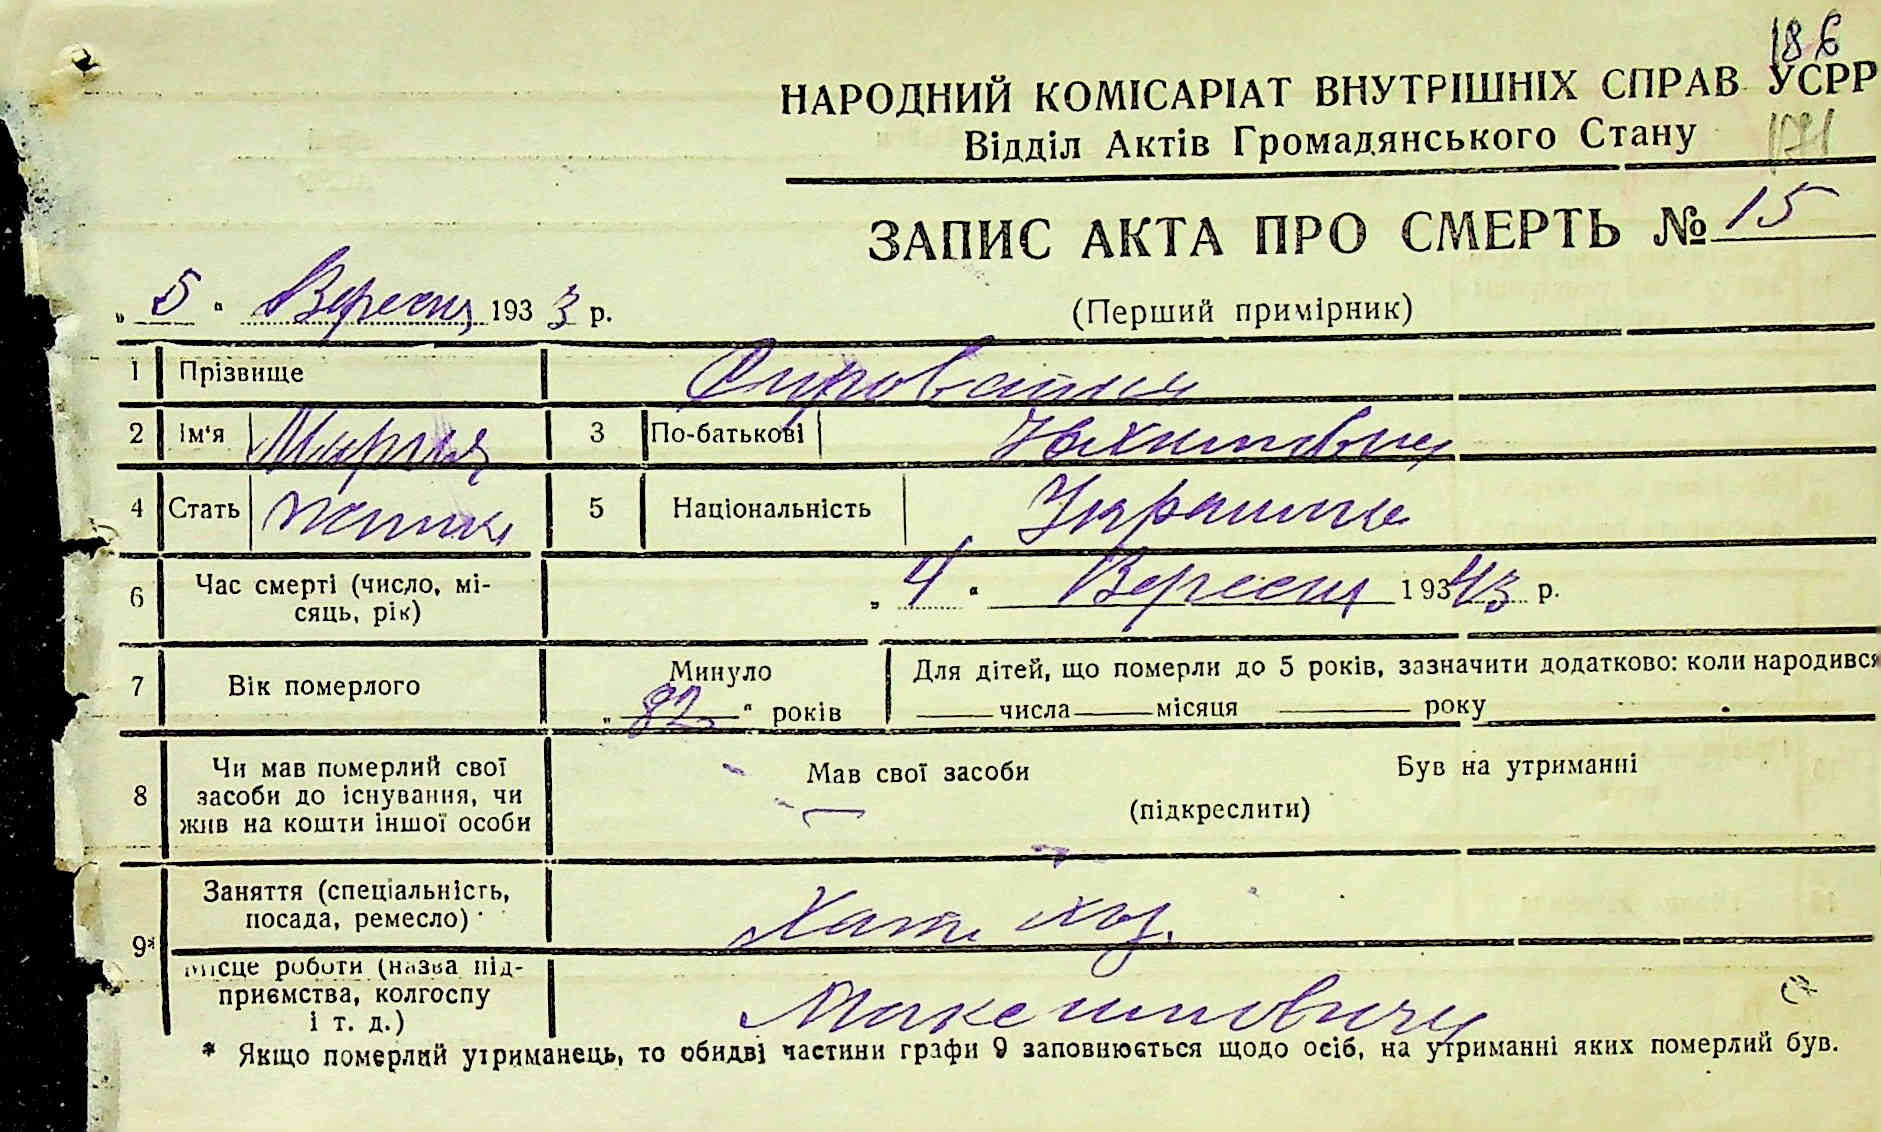 186
НАРОДНИЙ КОМІСАРІАТ ВНУТРІШНІХ СПРАВ УСРР
Відділ Актів Громадянського Стану 171
ЗАПИС АКТА ПРО СМЕРТЬ № 15
„ 5 " Вересня 1933 р. (Перший примірник)
1 Прізвище Сироватка
2 Ім'я Мария 3 По-батькові Юхимовна
4 Стать жіноча 5 Національність Украинка
6 Час смерті (число, мі-
сяць, рік) „ 4 " Вересня 19343 р.
7 Вік померлого Минуло „ 82 " років Для дітей, що померли до 5 років, зазначити додатково: коли народився
числа місяця року
8 Чи мав померлий свої
засоби до існування, чи
жив на кошти іншої особи
Мав свої засоби Був на утриманні
(підкреслити)
9* Заняття (спеціальність,
посада, ремесло) Хатн хоз.
Місце роботи (назва під-
приємства, колгоспу
і т. д.)
* Якщо померлий утриманець, то обидві частини графи 9 заповнюється щодо осіб, на утриманні яких померлий був.